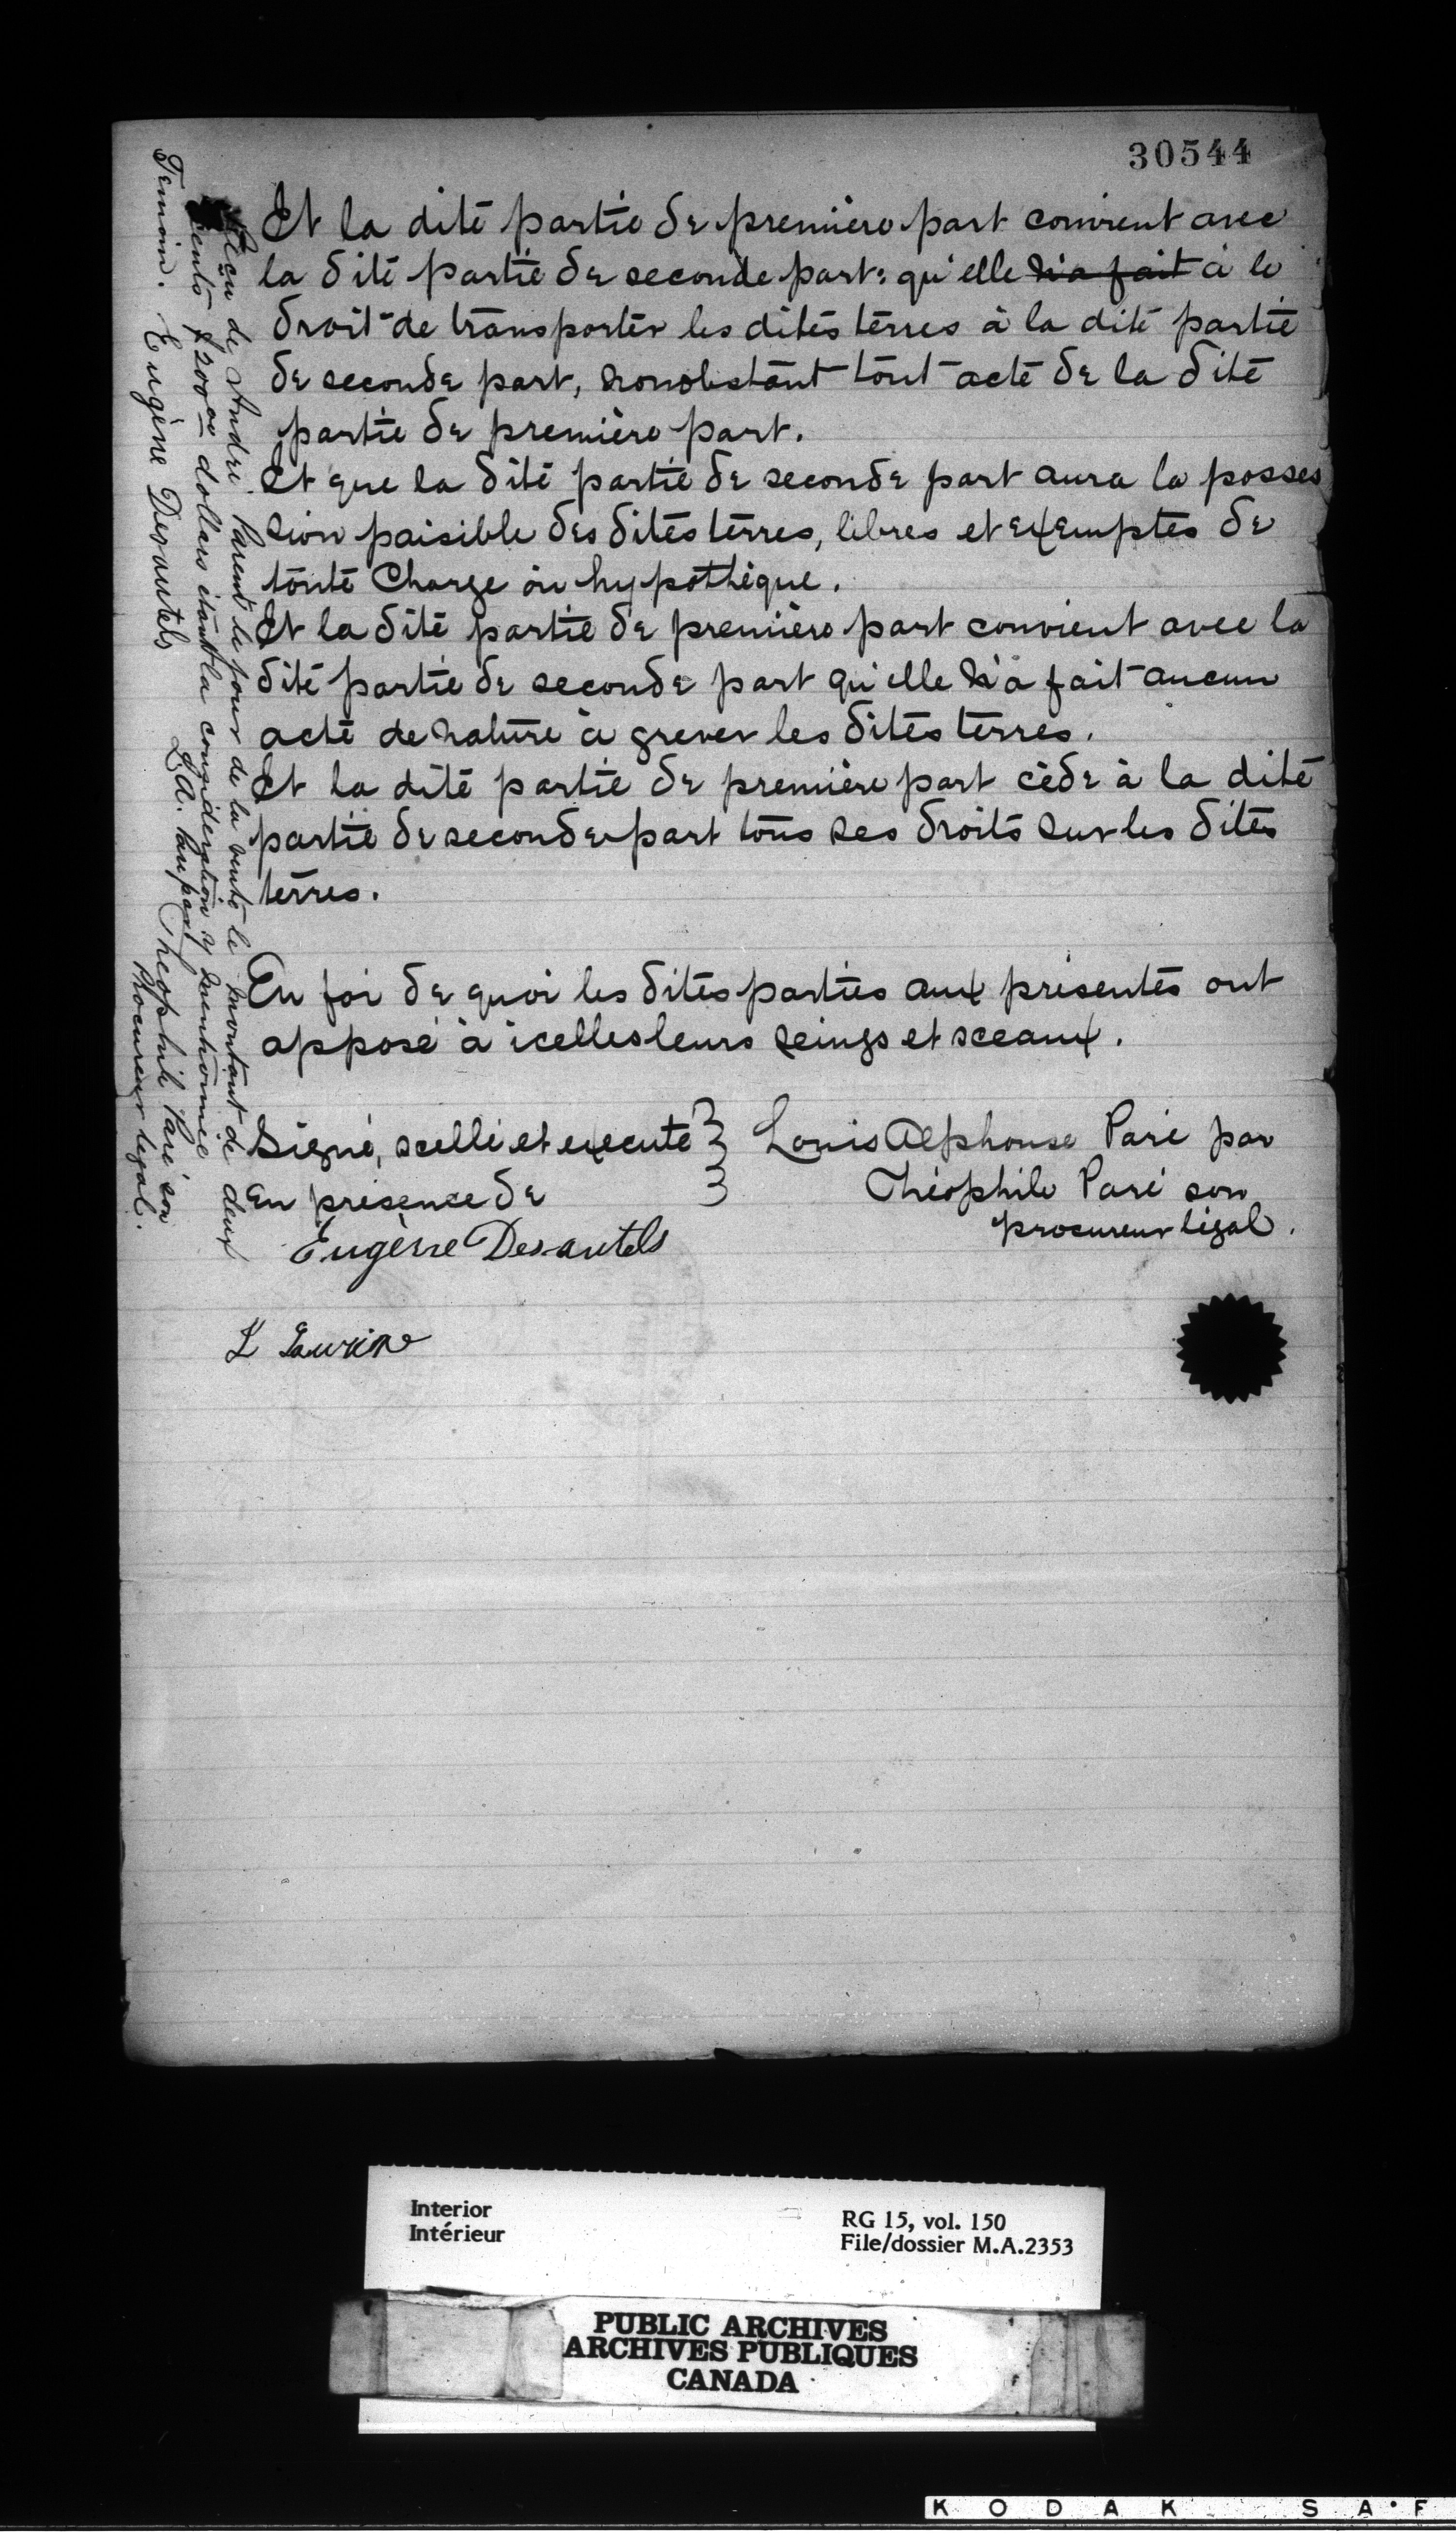 30544
Et la dite partie de première part convient avec
la dite partie de seconde part: qu'elle n'a fait a le
droit de transporter les dites terres à la dite partie
de seconde part, nonobstant tout acte de la dite
partie de première part.
Et que la dite partie de seconde part aura la posses
sion paisible des dites terres, libres et exemptes de
toute Charge ou hypothèque.
Et la dite partie de première part convient avec la
dite partie de seconde part qu'elle n'a fait aucun
acte de nature à grever les dites terres.
Et la dite partie de première part cède à la dite
partie de seconde part tous ses droits sur les dites
terres.
En foi de quoi les dites parties aux présentes ont
apposé à icelles leurs seings et sceaux.
Signé, scellé et executé
en présence de
Eugène Desautels
Louis Alphonse Paré par
Théophile Paré son
procureur légal.
Reçu de André Parent le jour de la vente le montant de deux
cents $200 00 dollars étant la considération y mentionnée
Temoin. Eugène Desautels L. A. Paré par Théophile Paré son
Procureur légal.
Interior
Intérieur
RG 15, vol. 150
File/dossier M.A.2353
PUBLIC ARCHIVES
ARCHIVES PUBLIQUES
CANADA
KODAK SAF